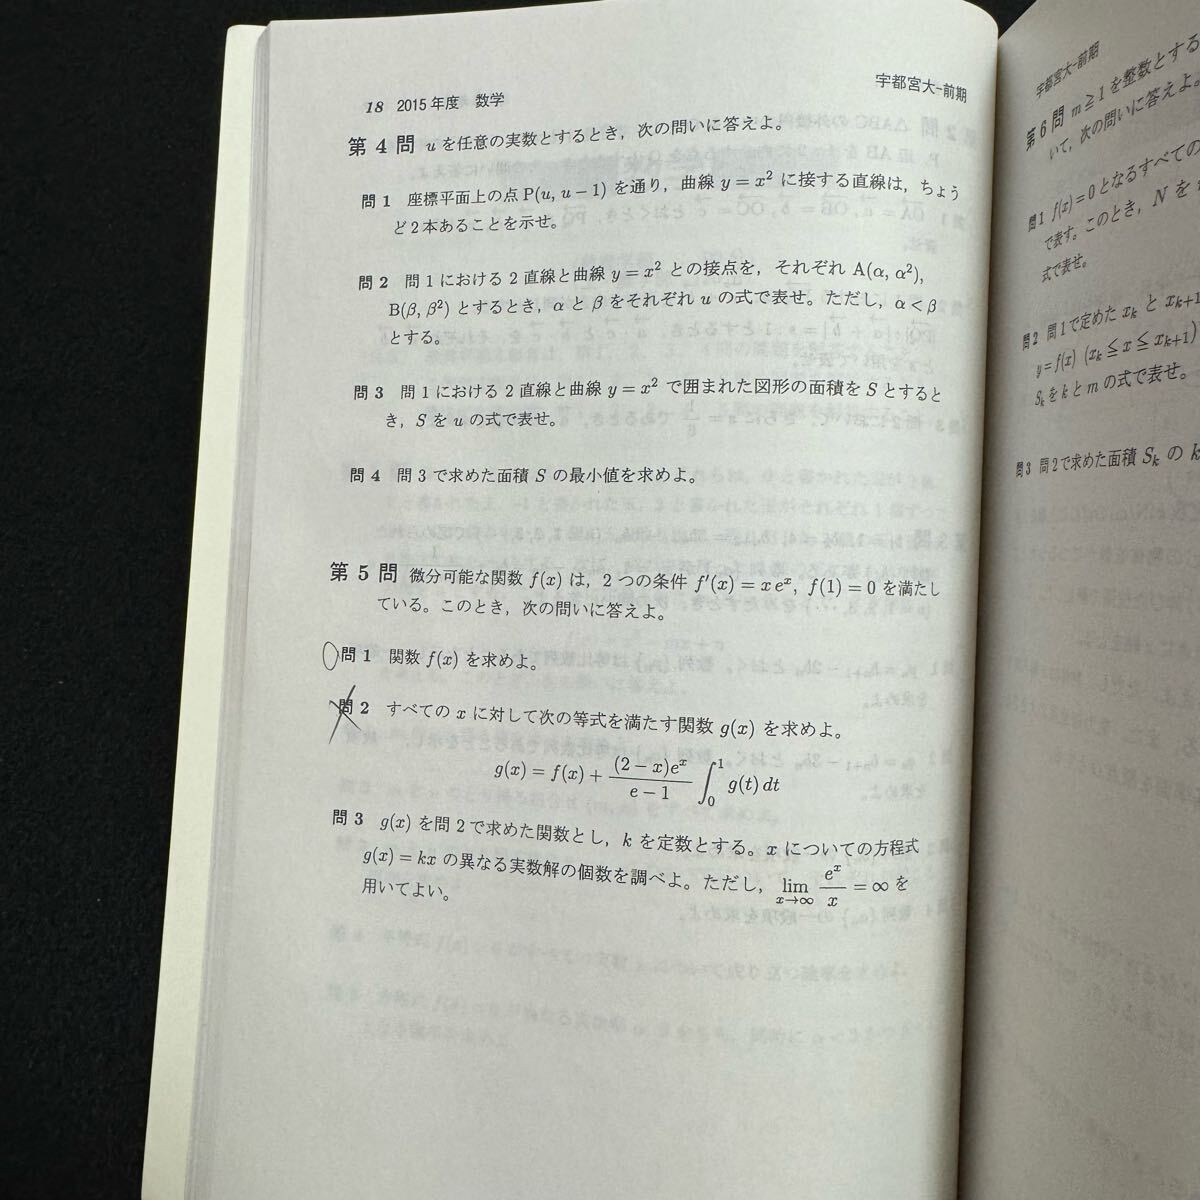 18 2015年度 数学
宇都宮大-前期
第4問 uを任意の実数とするとき,次の問いに答えよ。
問1 座標平面上の点P(u, u−1)を通り,曲線 y=x² に接する直線は,ちょう
ど2本あることを示せ。
問2 問1における2直線と曲線 y=x² との接点を,それぞれ A(α, α²),
B(β, β²)とするとき,αとβをそれぞれuの式で表せ。ただし,α<β
とする。
問3 問1における2直線と曲線 y=x² で囲まれた図形の面積をSとすると
き,Sをuの式で表せ。
問4 問3で求めた面積Sの最小値を求めよ。
第5問 微分可能な関数 f(x)は,2つの条件 f′(x)=xeˣ, f(1)=0 を満たし
ている。このとき,次の問いに答えよ。
問1 関数 f(x)を求めよ。
問2 すべてのxに対して次の等式を満たす関数 g(x)を求めよ。
g(x)=f(x)+(2−x)eˣ/(e−1) ∫₀¹ g(t)dt
問3 g(x)を問2で求めた関数とし,kを定数とする。xについての方程式
g(x)=kx の異なる実数解の個数を調べよ。ただし,lim x→∞ eˣ/x=∞ を
用いてよい。
宇都宮大-前期
第6問 m≧1を整数とする
いて,次の問いに答えよ。
問1 f(x)=0となるすべての
で表す。このとき,Nを
式で表せ。
問2 問1で定めた xₖ と xₖ₊₁
y=f(x) (xₖ≦x≦xₖ₊₁)
Sₖをkとmの式で表せ。
問3 問2で求めた面積 Sₖ の k